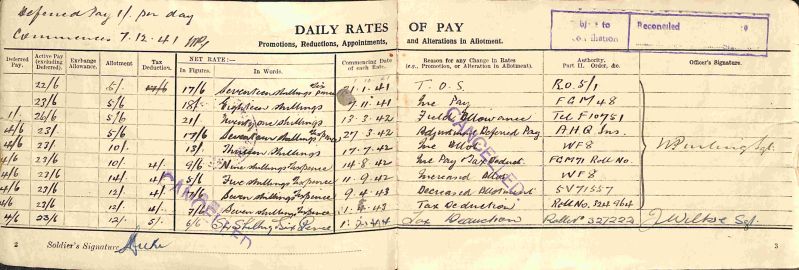 Deferred Pay 1/. per day
Commences 7.12.41
DAILY RATES OF PAY
Promotions, Reductions, Appointments, and Alterations in Allotment.
Subject to
Reconciled
Deferred Pay. Active Pay (excluding Deferred). Exchange Allowance. Allotment Tax Deduction. NET RATE:— In Figures. In Words. Commencing Date of each Rate. Reason for any Change in Rates (e.g., Promotion, or Alteration in Allotment). Authority, Part II. Order, &c. Officer's Signature.
22/6 5/. 17/6 Seventeen shillings Six pence 41 T.O.S. R.O.5/1
23/6 5/6 18/. Eighteen shillings 41 Inc Pay FGM48
1/. 26/6 5/6 21/ Twenty one shillings 3.42 Field Allowance Tel F10751
4/6 23/. 5/6 17/6 Seventeen shillings Six pence 27.3.42 Adjusting Deferred Pay AHQ Ins.
4/6 23/. 10/. 13/. Thirteen Shillings 17.7.42 Inc Allot WF8
4/6 23/6 10/. 4/. 9/6 Nine shillings Six pence 14.8.42 Inc Pay Tax Deduct. FGM71 Roll No.
4/6 23/6 14/. 4/. 5/6 Five shillings Six pence 11.9.42 Increased Allot WF8
4/6 23/6 12/. 4/. Seven shillings Six pence 9.4.43 Decreased Allotment SV71557
4/6 23/6 12/. 7/6 Seven shillings Six pence 43 Tax Deduction Roll No. 324964
4/6 23/6 12/. 5/. 6/6 Six Shillings Six Pence 44 Tax Deduction
CANCELLED
CANCELLED.
2 Soldier's Signature
3